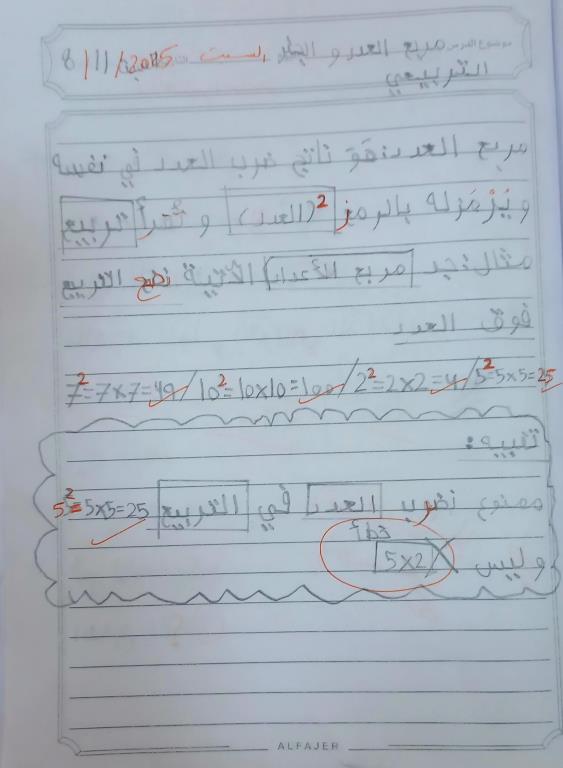 موضوع الدرس مربع العدد و الجذر السبت 8/11/2025
التربيعي
مربع العدد: هَوَ ناتج ضرب العدد في نفسه
ويُرْمَزله بالرمز (العدد)² و تُقرأ تربيع
مثال: جد مربع الأعداد الأتية نضع التربيع
فوق العدد
7²=7×7=49/10²=10×10=100/2²=2×2=4/5²=5×5=25
تنبيه:
ممنوع نضرب العدد في التربيع 5²=5×5=25
خطأ
وليس 5×2
ALFAJER